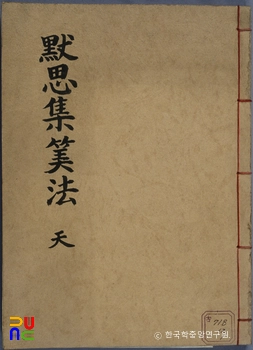 默思集筭法
天
718
© 한국학중앙연구원